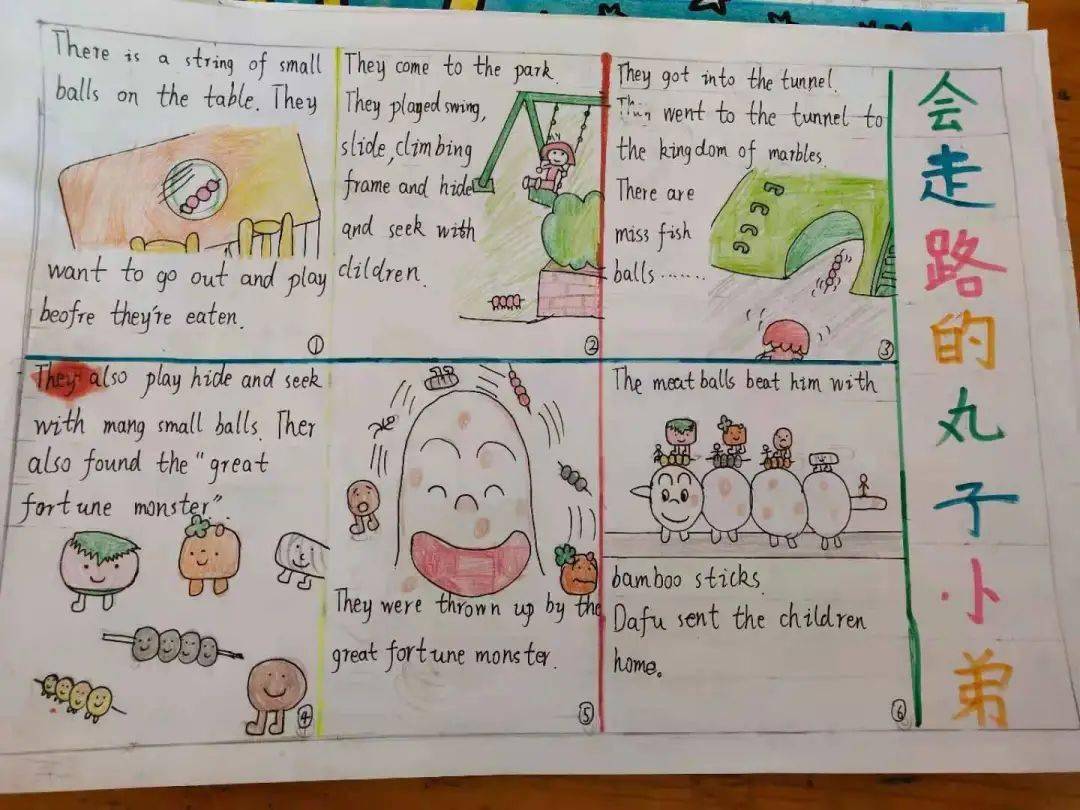 There is a string of small
balls on the table. They
want to go out and play
beofre they're eaten.
①
They come to the park.
They played swing,
slide, climbing
frame and hide
and seek with
cildren.
②
They got into the tunnel.
They went to the tunnel to
the kingdom of marbles.
There are
miss fish
balls ......
③
They also play hide and seek
with mang small balls. Ther
also found the "great
fortune monster".
④
They were thrown up by the
great fortune monster.
⑤
The meat balls beat him with
bamboo sticks.
Dafu sent the children
home。
⑥
会走路的丸子小弟